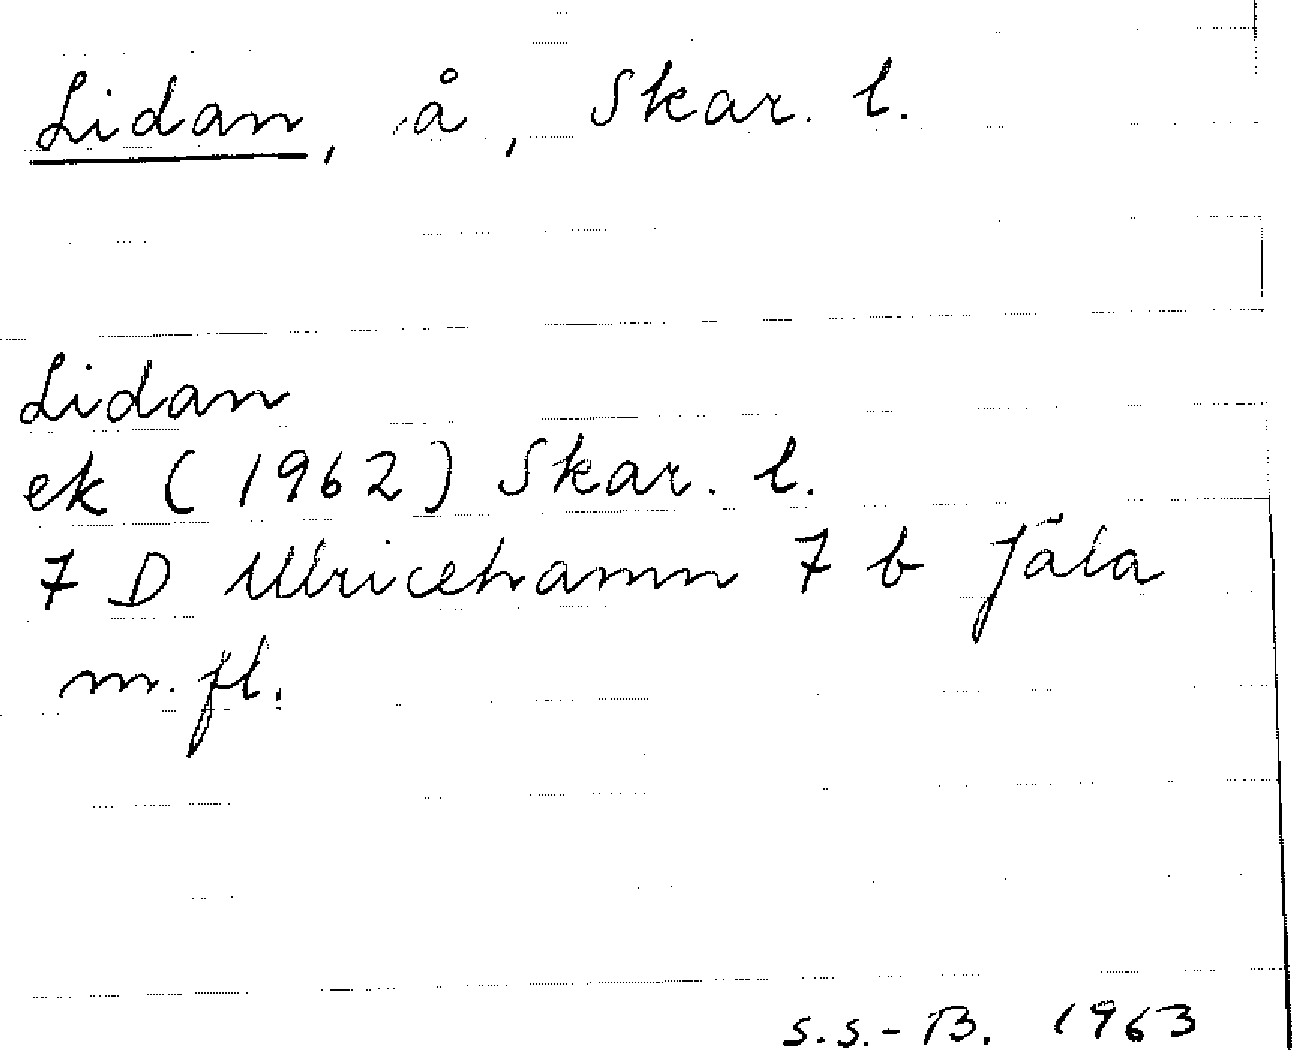 Lidan, å, Skar. l.
Lidan
ek (1962) Skar. l.
7 D Ulricehamn 7 b Jäla
m. fl.
S.S.-B. 1963